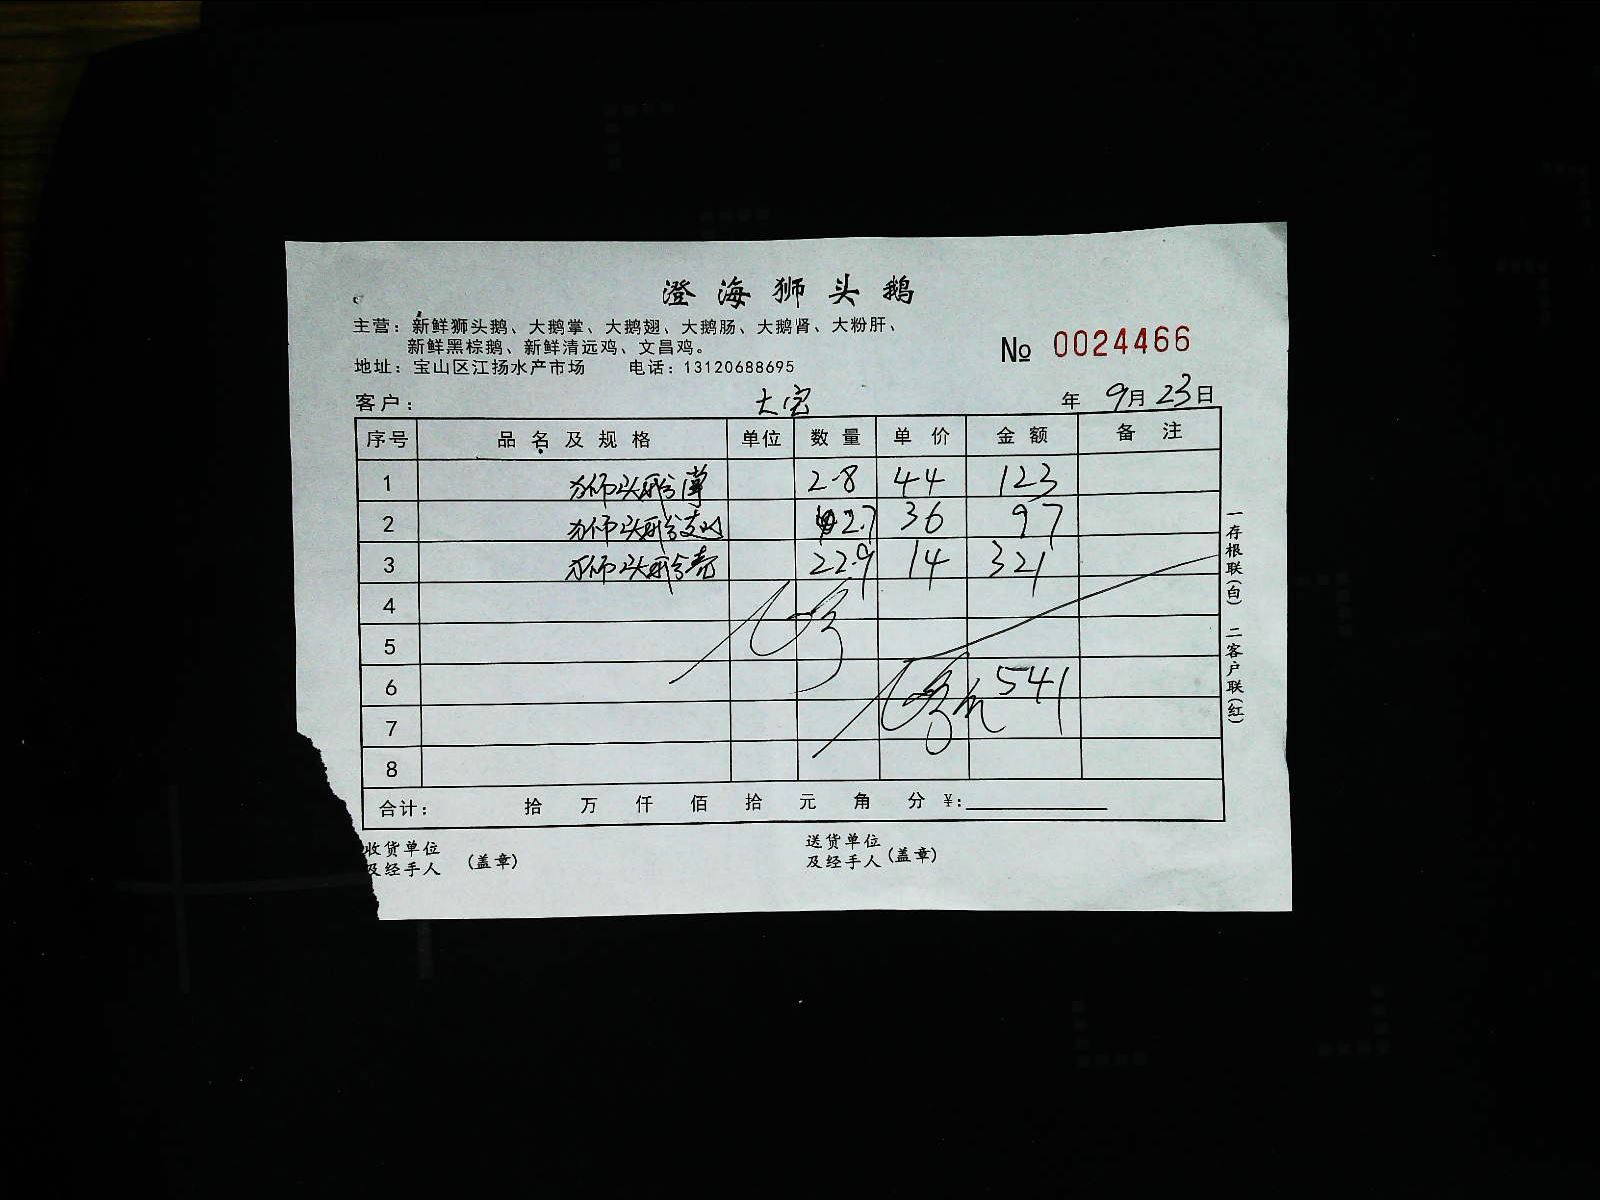 澄海狮头鹅
主营：新鲜狮头鹅、大鹅掌、大鹅翅、大鹅肠、大鹅肾、大粉肝、
新鲜黑棕鹅、新鲜清远鸡、文昌鸡。
地址：宝山区江扬水产市场 电话：13120688695
№ 0024466
客户： 大宝 年 9月 23日
序号 品名及规格 单位 数量 单价 金额 备注
1 狮头 2.8 44 123
2 狮头 2.7 36 97
3 狮头 22.9 14 321
4
5
6 541
7
8
合计： 拾 万 仟 佰 拾 元 角 分 ¥:
收货单位
及经手人 (盖章)
送货单位
及经手人 (盖章)
一存根联(白) 二客户联(红)